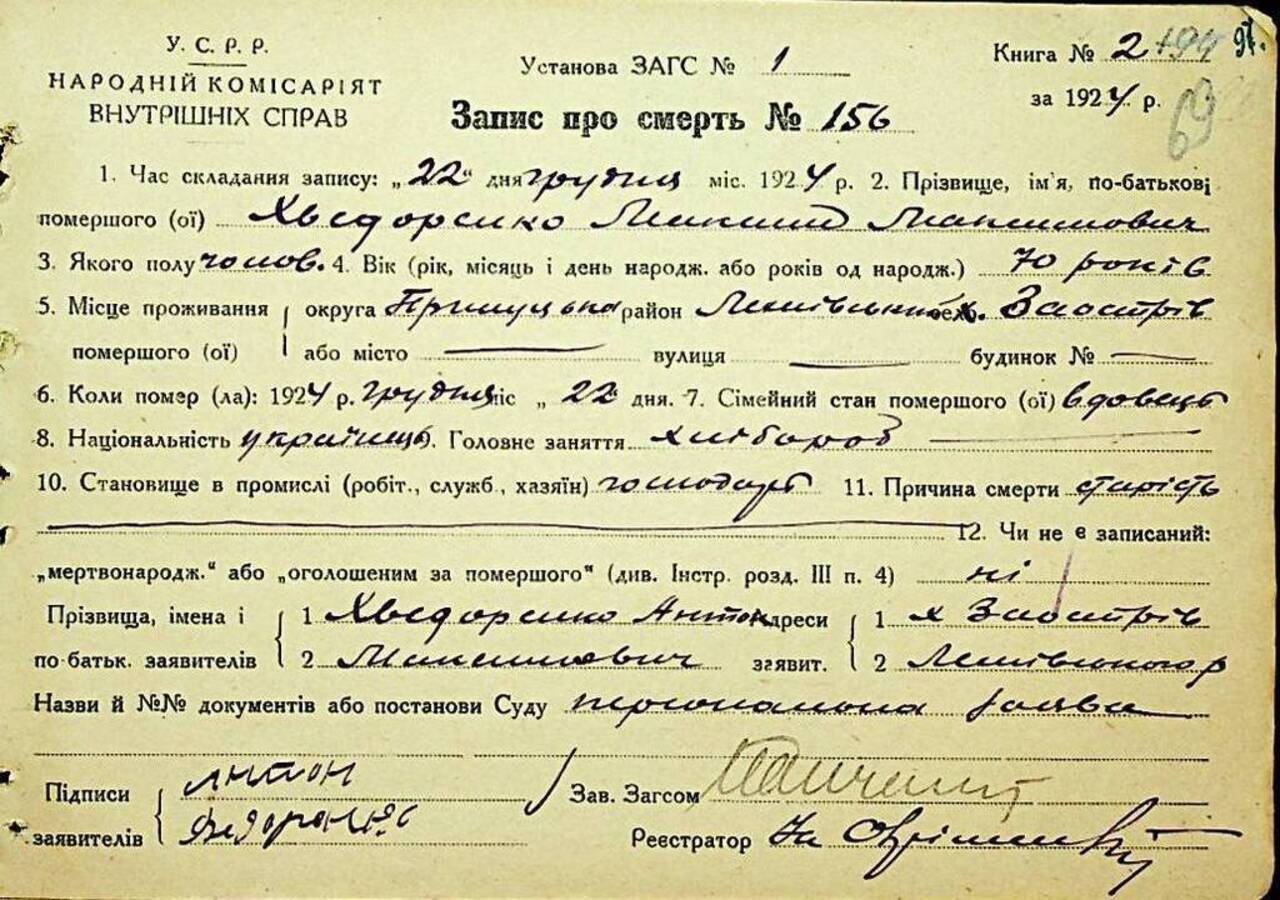 У. С. Р. Р.
НАРОДНІЙ КОМІСАРІЯТ
ВНУТРІШНІХ СПРАВ
Установа ЗАГС № 1
Книга № 2 194 97.
за 1924 р. 69
Запис про смерть № 156
1. Час складання запису: „22“ дня грудня міс. 1924 р. 2. Прізвище, ім'я, по-батькові
помершого (ої) Хведоренко Максим Максимович
3. Якого полу чолов. 4. Вік (рік, місяць і день народж. або років од народж.) 70 років
5. Місце проживання округа Прилуцька район х. Заострів
помершого (ої) або місто вулиця будинок №
6. Коли помер (ла): 1924 р. грудня міс „ 22 дня. 7. Сімейний стан помершого (ої) вдовець
8. Національність українець 9. Головне заняття хлібороб
10. Становище в промислі (робіт., служб., хазяїн) господарь 11. Причина смерти старість
12. Чи не є записаний:
„мертвонародж.“ або „оголошеним за помершого“ (див. Інстр. розд. III п. 4) ні
Прізвища, імена і 1 Хведоренко Антон Адреси 1 х Заострів
по-батьк. заявителів 2 Максимович заявит. 2
Назви й №№ документів або постанови Суду персональна заява
Підписи Антон Зав. Загсом
заявителів Реєстратор